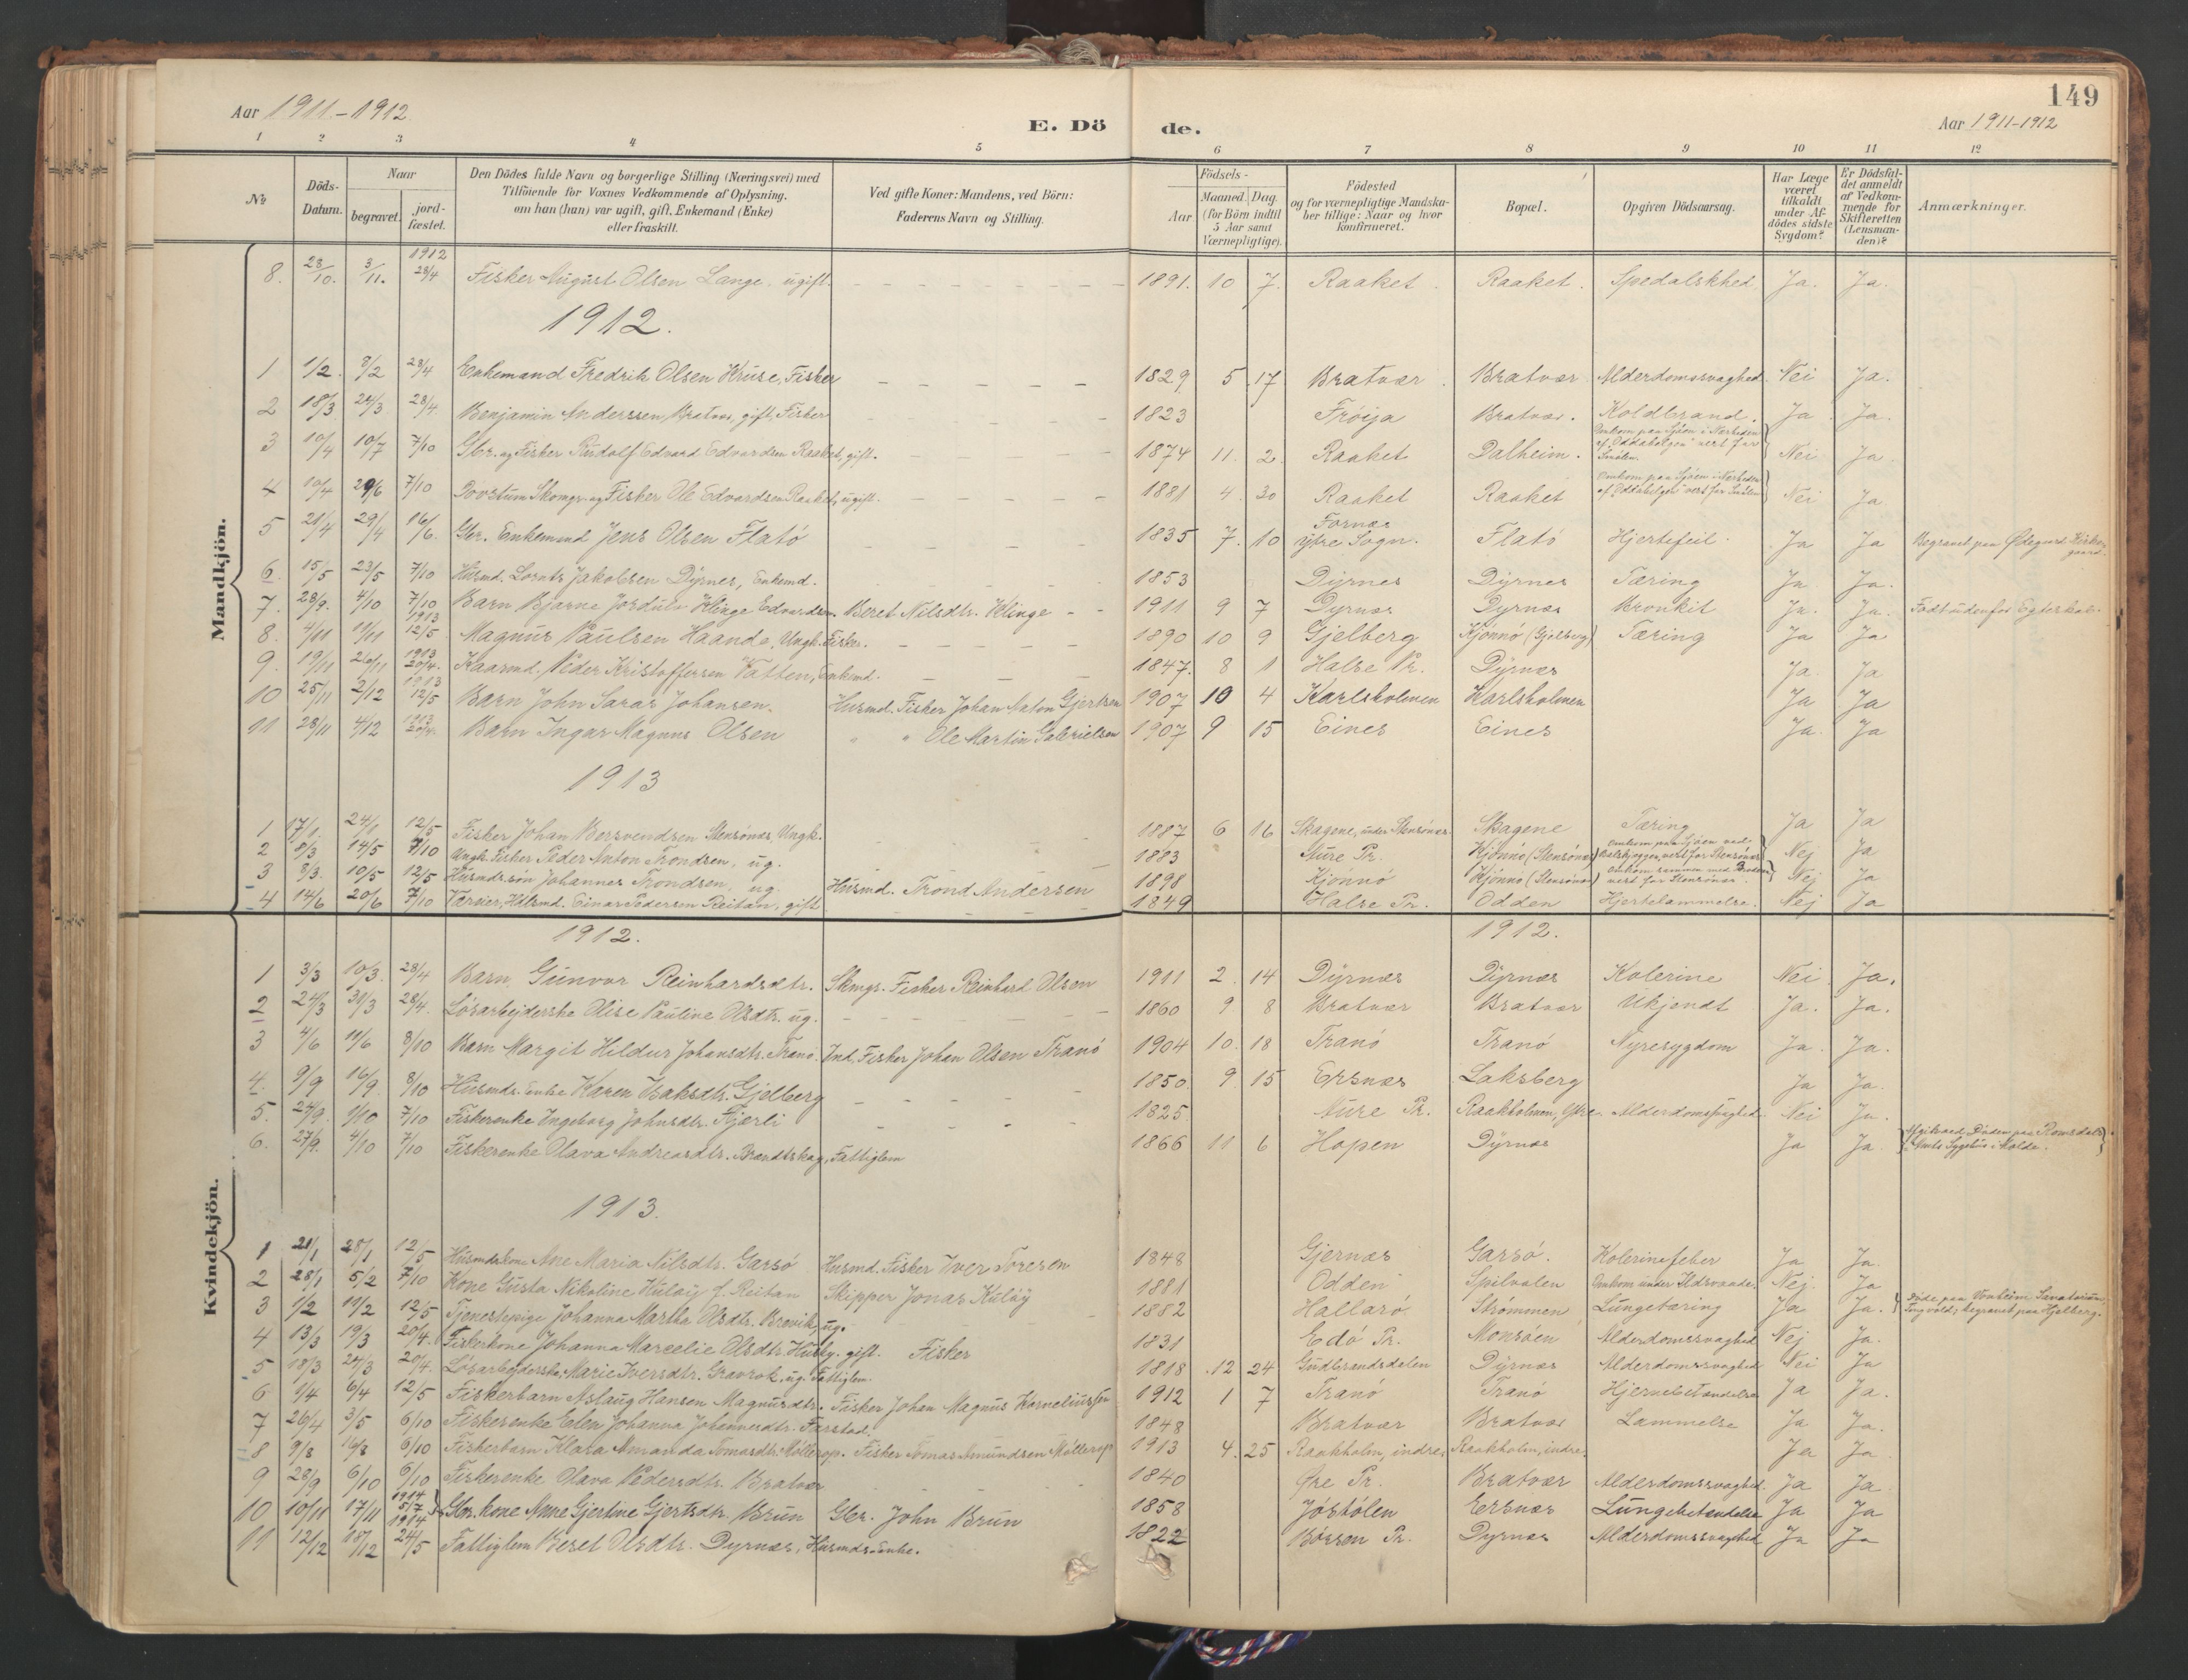 149
Aar 1911-1912
E. Dö de.
Aar 1911-1912
1 2 3 4 5 6 7 8 9 10 11 12
№
Döds-Datum.
Naar
begravet.
jord-fæstet.
Den Dödes fulde Navn og borgerlige Stilling (Næringsvei) med
Tilföiende for Voxnes Vedkommende af Oplysning.
om han (hun) var ugift, gift, Enkemand (Enke)
eller fraskilt.
Ved gifte Koner: Mandens, ved Börn:
Faderens Navn og Stilling.
Födsels-
Aar.
Maaned. Dag.
(for Börn indtil
5 Aar samt
Værnepligtige).
Födested
og for værnepligtige Mandska-
ber tillige: Naar og hvor
konfirmeret.
Bopæl.
Opgiven Dödsaarsag.
Har Læge
været
tilkaldt
under Af-
dödes sidste
Sygdom?
Er Dödsfal-
det anmeldt
af Vedkom-
mende for
Skifteretten
(Lensman-
den)?
Anmærkninger.
Mandkjön.
1912
8. 28/10. 3/11. 28/4 Fisker August Olsen Lange. ugift. 1891. 10 7. Raaket. Raaket. Spedalskhed. Ja. Ja.
1912.
1 1/2. 8/2 28/4 Enkemand Fredrik Olsen Kruse, Fisker 1829 5 17 Bratvær. Bratvær. Alderdomssvaghed. Nei Ja.
2 18/3 24/3 28/4. Benjamin Anderssen, Bratvær, gift, Fisker 1823 Fröija Bratvær. Koldbrand. Ja Ja.
3 10/4 10/7 7/10 Gbr. og Fisker Rudolf Edvard Edvardsen Raaket, gift. 1874 11. 2. Raaket Dalheim. Omkom paa Sjöen i Nærheden af "Oddabolgen" vest for Smölen. Nei Ja.
4 10/4 29/6 7/10 Skomgr. og Fisker Ole Edvardsen Raaket, ugift. 1881 4. 30 Raaket Raaket Omkom paa Sjöen i Nærheden af "Oddabolgen" vest for Smölen Nei Ja
5 21/4 29/4 16/6. Gbr. Enkemand Jens Olsen Flatö 1835 7. 10 Fornæs ytre Sogn. Flatö Hjertefeil. Ja Ja Begravet paa Ødegaard Kirkegaard.
6. 15/5 23/5 7/10 Husmd. Lornts Jakobsen Dyrnes, Enkemd. 1853 Dyrnes Dyrnes Tæring Ja Ja.
7. 28/9. 4/10 7/10 Barn Bjarne Jordulv Klinge Edvardsen. Beret Nilsdtr. Klinge 1911 9 7 Dyrnæs Dyrnæs Bronkit Ja. Ja. Födt udenfor Egteskab.
8. 4/11 11/11 1913 12/5 Magnus Paulsen Haande, Ungk. Fisker. 1890 10 9 Gjelberg Kjönnö (Gjelberg) Tæring Ja Ja
9. 19/11 26/11 1913 20/4. Kaarmd. Peder Kristoffersen Vatten, Enkemd. 1847. 8 1 Halse Pr. Dyrnæs Ja. Ja
10 25/11 2/12 1913 12/5 Barn John Sarar Johansen. Husmd. Fisker Johan Anton Gjertsen 1907 10 4 Karlsholmen Karlsholmen Ja Ja
11 28/11 4/12 1913 20/4. Barn Ingar Magnus Olsen " " Ole Martin Gabrielsen 1907 9 15 Eines Eines Ja. Ja
1913
1 17/1. 24/1 12/5 Fisker Johan Bersvendsen Stensönæs, Ungk. 1887 6 16 Skagene, under Stensönæs Skagene Tæring Ja Ja
2 8/3 14/5 7/10 Ungk. Fisker Peder Anton Trondsen, ug. 1883 Aure Pr. Kjönnö (Stensönæs) Omkom paa Sjöen ved vest for Stensönæs Nej Ja
3 8/3. 10/5 12/5 Husmds. sön Johannes Trondsen, ug. Husmd. Trond Andersen 1898 Kjönnö Kjönnö (Stensönæs) Omkom sammen med Broderen vest for Stensönæs. Nej Ja
4 14/6 20/6 7/10 Husmd. Einar Pedersen Reitan, gift 1849 Halse Pr. Odden Hjertelammelse. Nej Ja
Kvindekjön.
1912. 1912.
1 3/3 10/3. 28/4 Barn Gunvor Reinhardsdtr. Skmgr. Fisker Reinhard Olsen 1911 2. 14 Dyrnæs Dyrnæs Kolerine Nei Ja.
2 24/3 31/3 28/4. Lösarbejderske Olise Pauline Olsdtr. ug. 1860 9. 8 Bratvær Bratvær Ukjendt Ja. Ja.
3 4/6 11/6 8/10 Barn Margit Hildur Johansdtr. Tranö. Ind. Fisker Johan Olsen Tranö 1904 10. 18 Tranö Tranö Nyresygdom Ja. Ja.
4. 9/9 16/9 8/10 Husmds. enke Karen Isaksdtr. Gjelberg 1850. 9. 15 Ersnæs Laksberg Ja Ja.
5. 24/9. 1/10 7/10 Fiskerenke Ingeborg Johnsdtr. Fjærli 1825. Aure Pr. Raakholmen, ytre. Alderdomssvaghed. Nei Ja.
6. 27/9. 4/10 7/10 Fiskerenke Olava Andreasdtr. Brandtskag, Fattiglem 1866 11 6 Hopen Dyrnæs Ja Ja. Döden paa Romsdals Amts Sygehus i Molde.
1913.
1 21/1 28/1 12/5 Husmdskone Ane Maria Nilsdtr. Garsö Husmd. Fisker Iver Toresen 1848 Gjernæs Garsö. Kolerinefeber Ja Ja.
2 28/1 5/2 7/10 Kone Gusta Nikoline Kulöy f. Reitan Skipper Jonas Kulöy 1881 Odden Spilvolen Omkom under Ildsvaade. Nej. Ja
3 1/2 11/2 12/5 Tjenestepige Johanna Martha Olsdtr. Brevik, ug. 1882 Hallarö Strömmen Lungetæring Ja Ja. Döde paa Vonheim Sanatorium, Tingvold; begravet paa Hjelberg.
4 13/3 19/3 20/4. Fiskerkone Johanna Marcelie Olsdtr. Husby. gift. Fisker 1831 Edö Pr. Monsöen Alderdomssvaghed Nej Ja.
5 18/3 27/3 20/4. Lösarbejderske Marie Iversdtr. Gravrok, ug. Fattiglem. 1818 12 24 Gudbrandsdalen Dyrnæs Alderdomssvaghed Nei Ja
6 1/4 6/4 12/5 Fiskerbarn Aslaug Hansen Magnusdtr. Fisker Johan Magnus Korneliussen 1912 1 7 Tranö Tranö Hjernebetændelse Ja Ja.
7 26/4 3/5 6/10 Fiskerenke Elen Johanna Johannesdtr. Farstad. 1848 Bratvær Bratvær Lammelse Ja Ja.
8 9/8 16/8 6/10 Fiskerbarn Klara Amanda Tomasdtr. Möllerop. Fisker Tomas Amundsen Möllerop 1913 4. 25 Raakholm, indre. Raakholm, indre. Ja Ja.
9 28/9 6/10 6/10 Fiskerenke Olava Pedersdtr. Bratvær 1840 Øre Pr. Bratvær Alderdomssvaghed. Ja Ja.
10 10/11 17/11 1914 5/7 Gbr. kone Anne Gjertine Gjertsdtr. Brun Gbr. John Brun 1858 Jöstölen Ersnæs Lungebetændelse Ja Ja
11 12/12 18/12 1914 24/5 Fattiglem Beret Olsdtr. Dyrnæs, Husmds. Enke. 1822 Börsen Pr. Dyrnæs Alderdomssvaghed Ja Ja